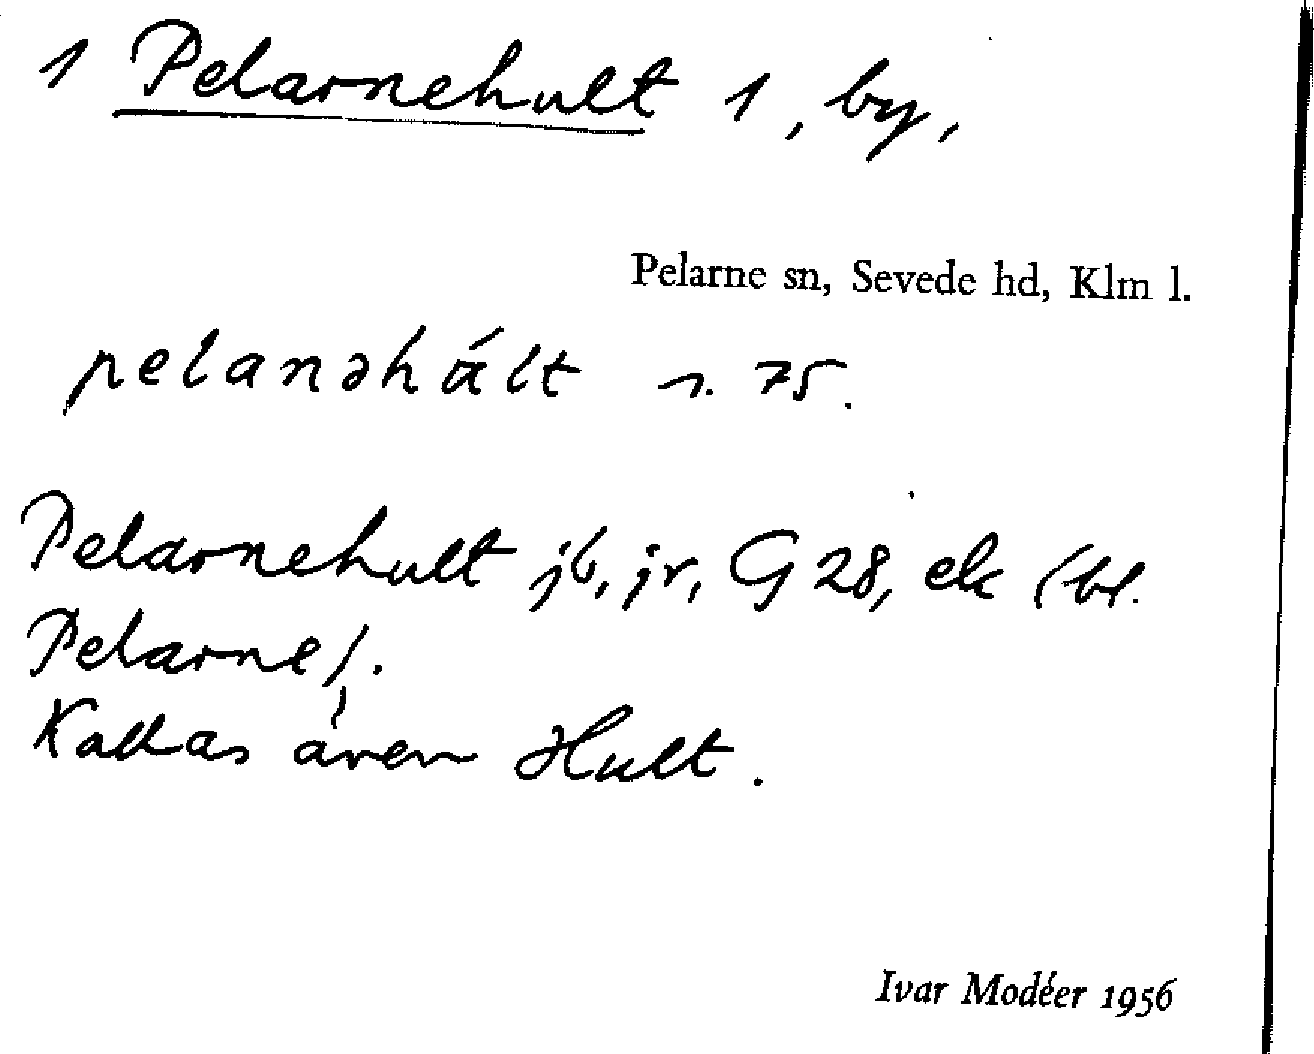 1 Pelarnehult 1, by,
Pelarne sn, Sevede hd, Klm l.
pelanəhált s. 75.
Pelarnehult jb, jr, G 28, ek (bl.
Pelarne).
Kallas även Hult.
Ivar Modéer 1956